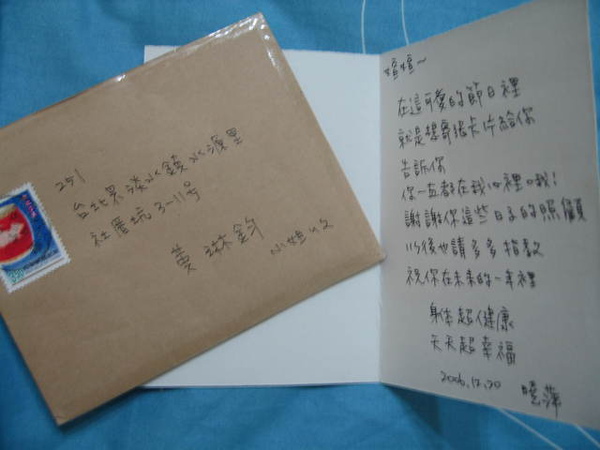 251
台北縣淡水鎮水源里
社厝坑3-11号
黃琳鈞 小姐收
萱萱~
在這可愛的節日裡
就是想寄張卡片給你
告訴你
你一直都在我心裡哦!
謝謝你這些日子的照顧
以後也請多多指教
祝你在未來的一年裡
身体超健康
天天超幸福
2006.12.20 曉萍